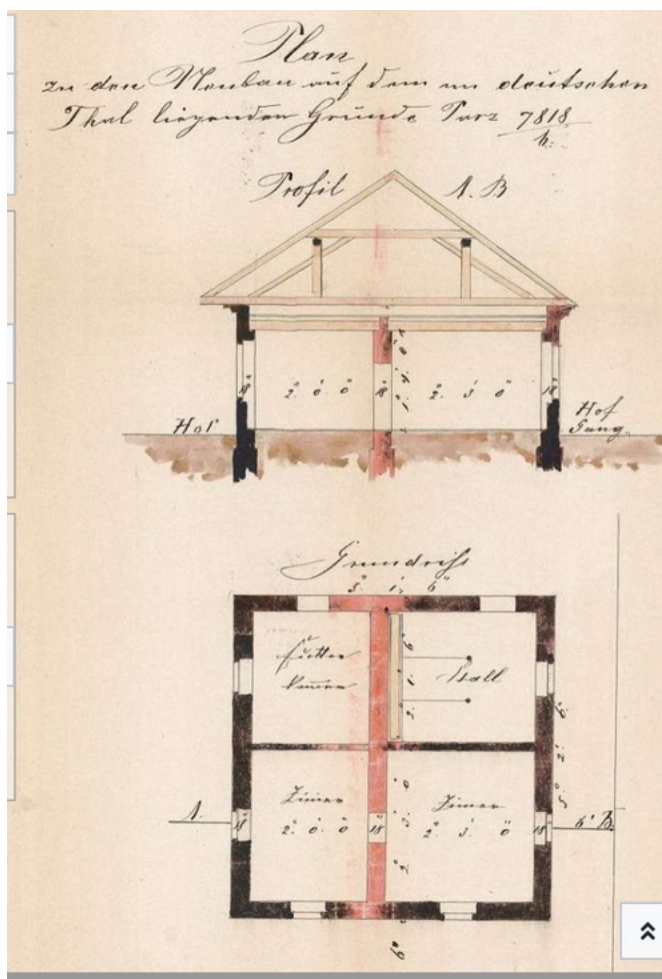 Plan
zu den Neubau auf dem im deutschen
Thal liegenden Grunde Parz 7818/b.
Profil A. B
18" 2.° 0.' 0." 18" 2.° 3.' 0." 18"
Hof
Hof
Gang.
Grundriß
5.° 1.' 6"
Futter
kamer
Stall
2. 1. 6"
5.° 2. 6.
Zimer
Zimer
A.
18" 2.° 0.' 0." 18" 2.° 3.' 0." 18"
6' B.
2. 3. 0